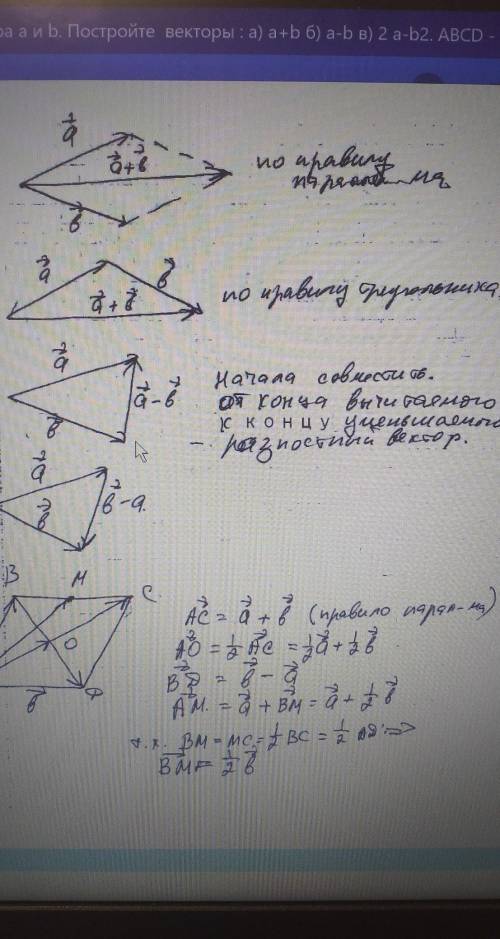 ра a и b. Постройте векторы : а) a+b б) a-b в) 2 a-b2. ABCD -
a⃗
a⃗+b⃗
b⃗
по правилу
парал-ма
a⃗
b⃗
a⃗ + b⃗
по правилу треугольника,
a⃗
a⃗ - b⃗
b⃗
Начала совместить.
от конца вычитаемого
к концу уменьшаемого
- разностный вектор.
a⃗
b⃗
b⃗ - a.
B M C
O
b⃗
AC⃗ = a⃗ + b⃗ (правило парал-ма)
AO⃗ = 1/2 AC⃗ = 1/2 a⃗ + 1/2 b⃗
BD⃗ = b⃗ - a⃗
AM⃗. = a⃗ + BM⃗ = a⃗ + 1/2 b⃗
т.к. BM = MC = 1/2 BC = 1/2 AD ⇒
BM⃗ = 1/2 b⃗